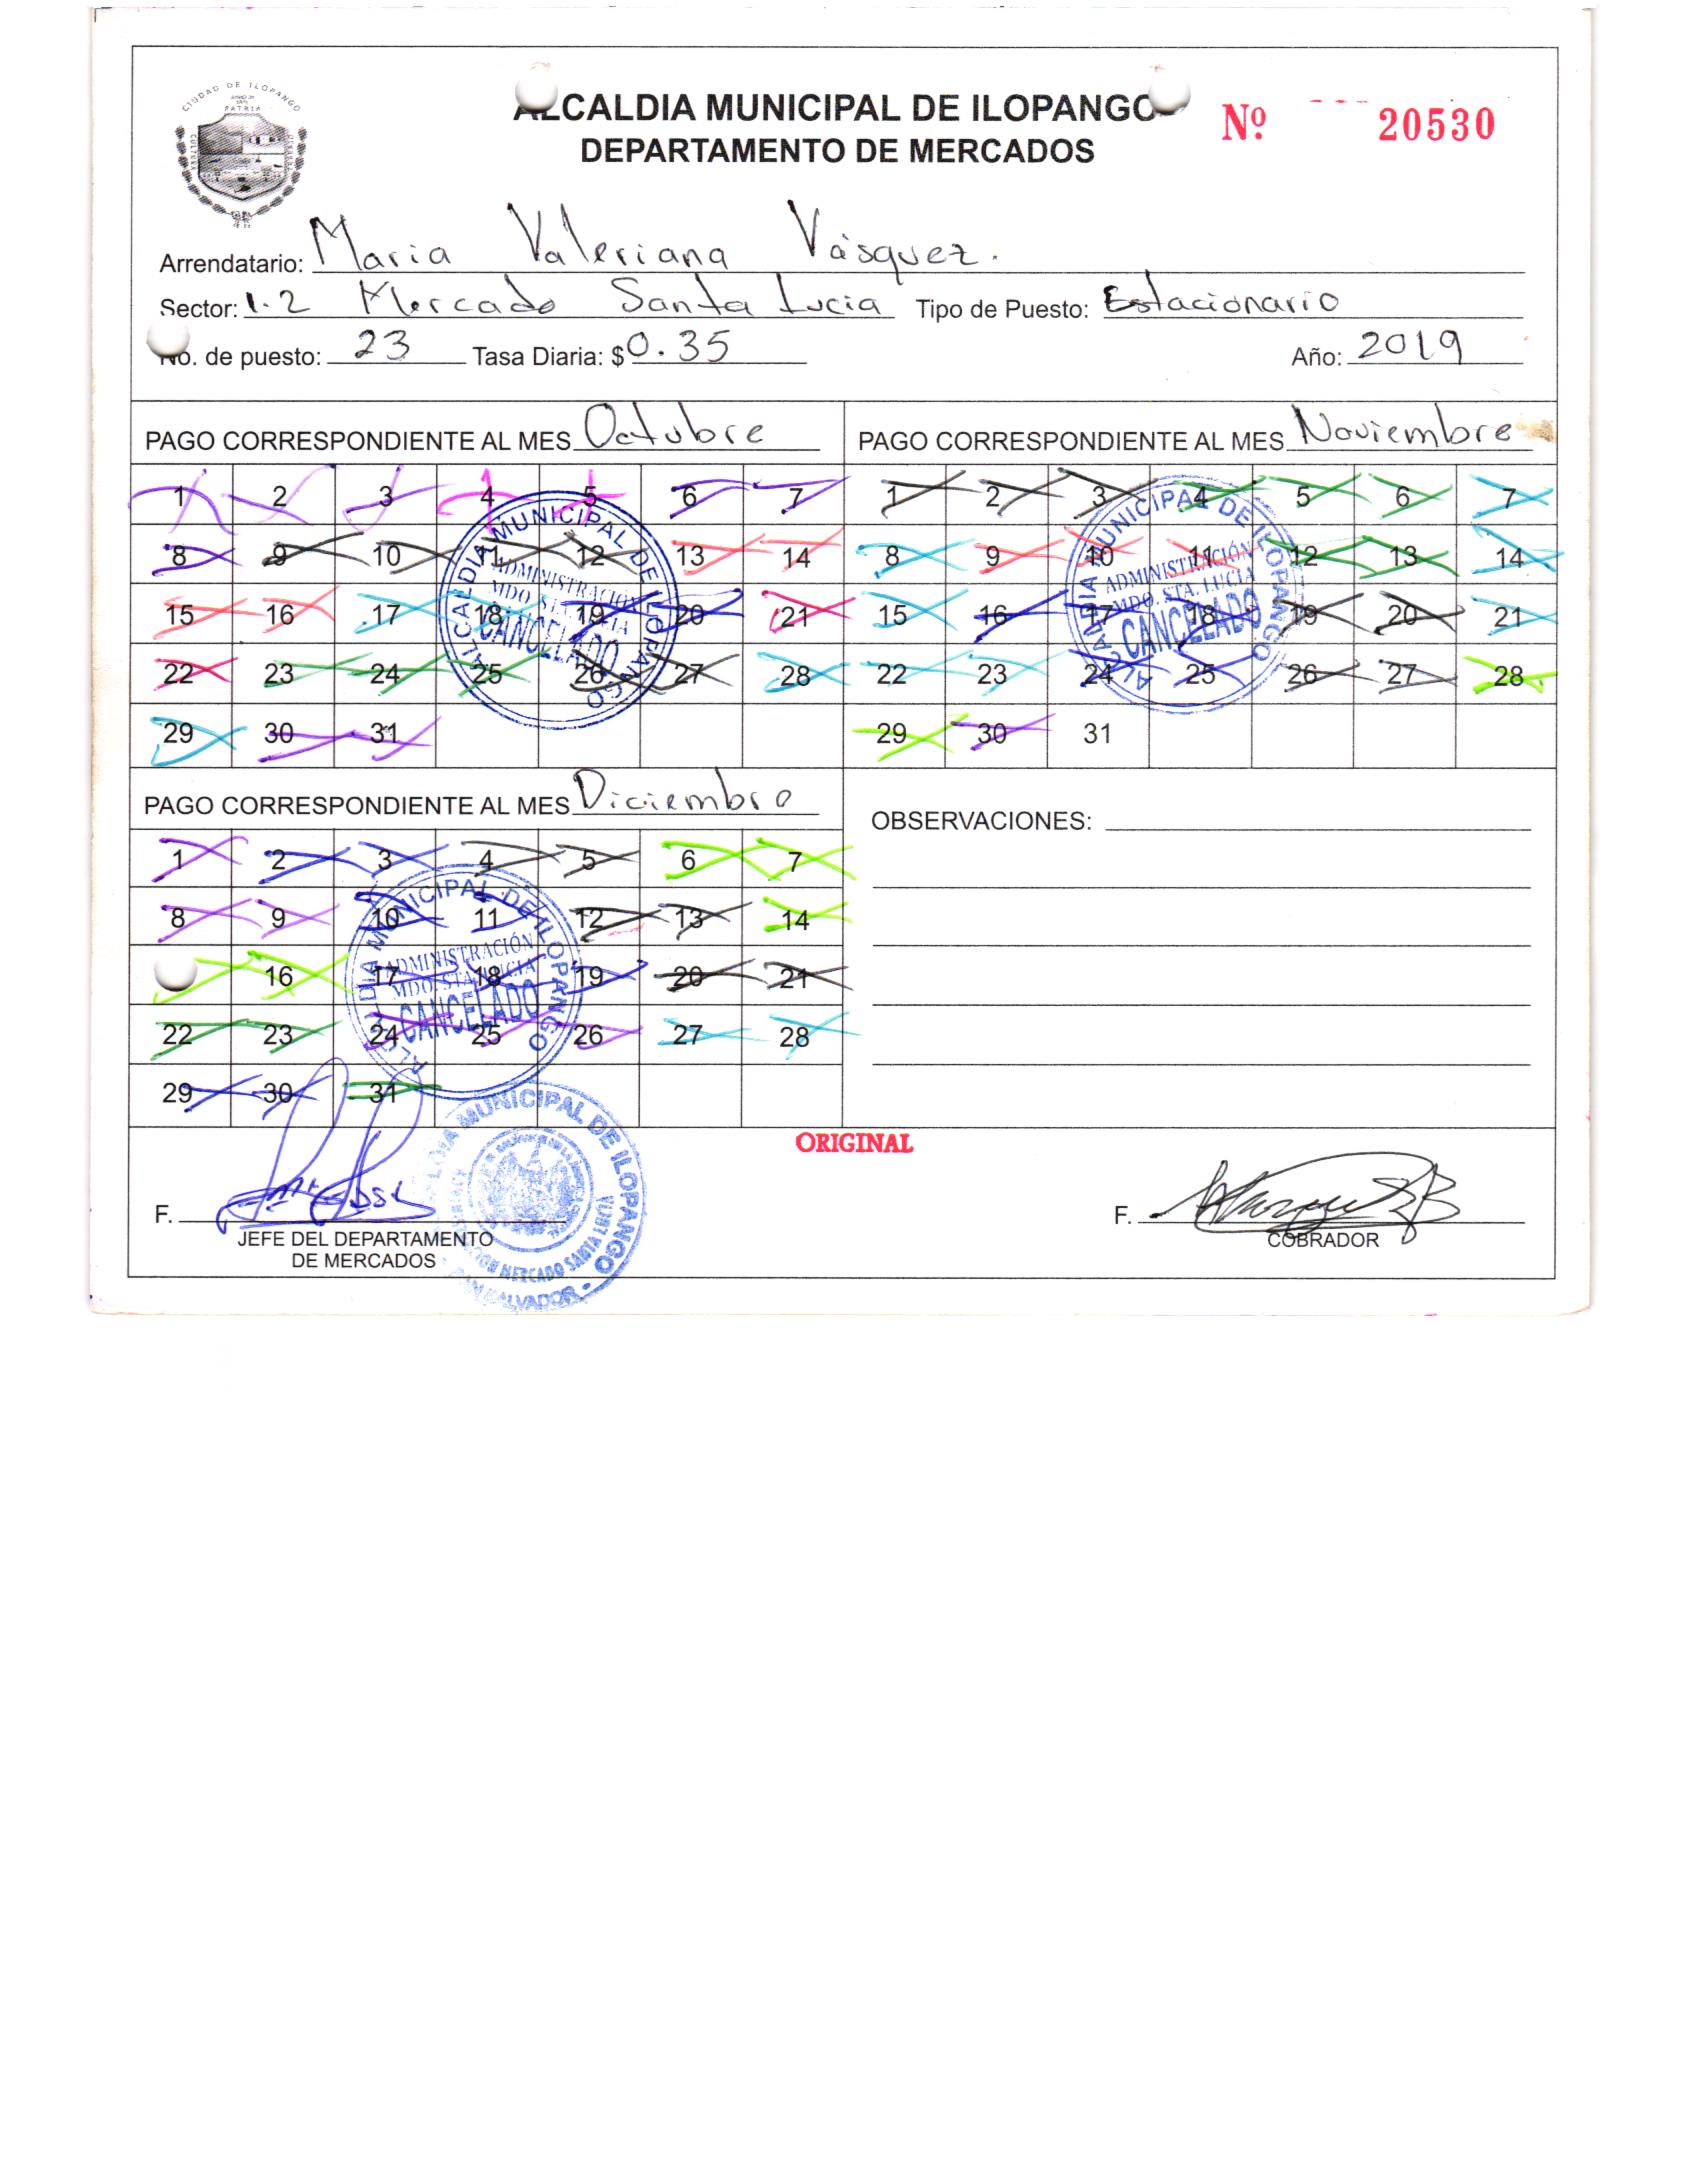 CIUDAD DE ILOPANGO
PATRIA
CULTURA
ALCALDIA MUNICIPAL DE ILOPANGO
DEPARTAMENTO DE MERCADOS
Nº 20530
Arrendatario: Maria Valeriana Vásquez.
Sector: 1-2 Mercado Santa Lucia Tipo de Puesto: Estacionario
No. de puesto: 23 Tasa Diaria: $ 0.35 Año: 2019
PAGO CORRESPONDIENTE AL MES Octubre
1 2 3 4 5 6 7
8 9 10 11 12 13 14
15 16 17 18 19 20 21
22 23 24 25 26 27 28
29 30 31
ALCALDIA MUNICIPAL DE ILOPANGO
ADMINISTRACIÓN
MDO. STA. LUCIA
CANCELADO
PAGO CORRESPONDIENTE AL MES Noviembre
1 2 3 4 5 6 7
8 9 10 11 12 13 14
15 16 17 18 19 20 21
22 23 24 25 26 27 28
29 30 31
ALCALDIA MUNICIPAL DE ILOPANGO
ADMINISTRACIÓN
MDO. STA. LUCIA
CANCELADO
PAGO CORRESPONDIENTE AL MES Diciembre
1 2 3 4 5 6 7
8 9 10 11 12 13 14
16 17 18 19 20 21
22 23 24 25 26 27 28
29 30 31
ALCALDIA MUNICIPAL DE ILOPANGO
ADMINISTRACIÓN
MDO. STA. LUCIA
CANCELADO
OBSERVACIONES:
ORIGINAL
F.
JEFE DEL DEPARTAMENTO
DE MERCADOS
MUNICIPAL DE ILOPANGO
MERCADO SANTA
SALVADOR
F.
COBRADOR